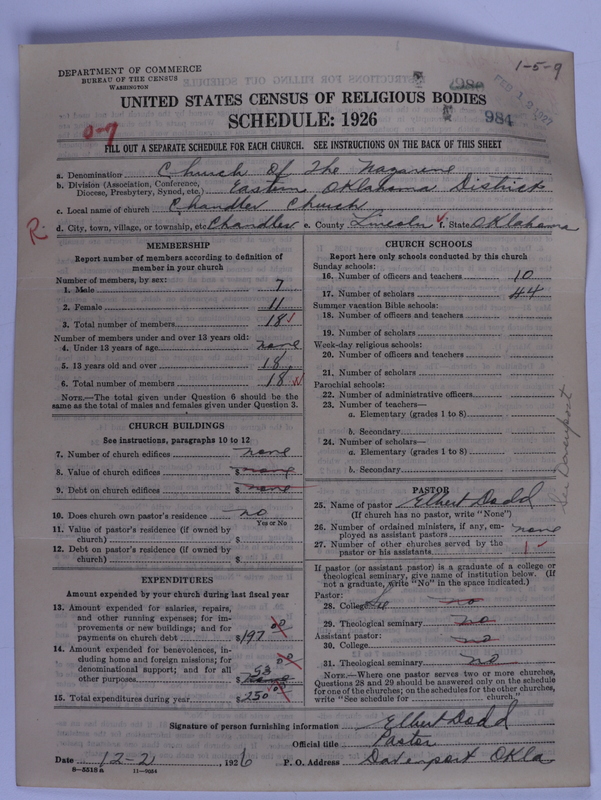 1-5-9
DEPARTMENT OF COMMERCE
BUREAU OF THE CENSUS
WASHINGTON
FEB 19 1927
984
UNITED STATES CENSUS OF RELIGIOUS BODIES
SCHEDULE: 1926
FILL OUT A SEPARATE SCHEDULE FOR EACH CHURCH. SEE INSTRUCTIONS ON THE BACK OF THIS SHEET
a. Denomination Church Of The Nazarene
b. Division (Association, Conference, Diocese, Presbytery, Synod, etc.) Eastern Oklahoma District
c. Local name of church Chandler Church
R. d. City, town, village, or township, etc. Chandler e. County Lincoln f. State Oklahoma
MEMBERSHIP
Report number of members according to definition of
member in your church
Number of members, by sex:
1. Male 7
2. Female 11
3. Total number of members 18
Number of members under and over 13 years old:
4. Under 13 years of age none
5. 13 years old and over 18
6. Total number of members 18
NOTE.—The total given under Question 6 should be the
same as the total of males and females given under Question 3.
CHURCH BUILDINGS
See instructions, paragraphs 10 to 12
7. Number of church edifices none
8. Value of church edifices $ none
9. Debt on church edifices $ none
10. Does church own pastor's residence no
Yes or No
11. Value of pastor's residence (if owned by
church) $
12. Debt on pastor's residence (if owned by
church) $
EXPENDITURES
Amount expended by your church during last fiscal year
13. Amount expended for salaries, repairs,
and other running expenses; for im-
provements or new buildings; and for
payments on church debt $197 00
14. Amount expended for benevolences, in-
cluding home and foreign missions; for
denominational support; and for all
other purposes 53 00
15. Total expenditures during year $250 00
CHURCH SCHOOLS
Report here only schools conducted by this church
Sunday schools:
16. Number of officers and teachers 10
17. Number of scholars 44
Summer vacation Bible schools:
18. Number of officers and teachers
19. Number of scholars
Week-day religious schools:
20. Number of officers and teachers
21. Number of scholars
Parochial schools:
22. Number of administrative officers
23. Number of teachers—
a. Elementary (grades 1 to 8)
b. Secondary
24. Number of scholars—
a. Elementary (grades 1 to 8)
b. Secondary
See Davenport
PASTOR
25. Name of pastor Elbert Dodd
(If church has no pastor, write "None")
26. Number of ordained ministers, if any, em-
ployed as assistant pastors none
27. Number of other churches served by the
pastor or his assistants 1
If pastor (or assistant pastor) is a graduate of a college or
theological seminary, give name of institution below. (If
not a graduate, write "No" in the space indicated.)
Pastor:
28. College no
29. Theological seminary no
Assistant pastor:
30. College no
31. Theological seminary no
NOTE.—Where one pastor serves two or more churches,
Questions 28 and 29 should be answered only on the schedule
for one of the churches; on the schedules for the other churches,
write "See schedule for church."
Signature of person furnishing information Elbert Dodd
Official title Pastor
Date 12-2, 1926 P. O. Address Davenport Okla
8-5518a 11-9034